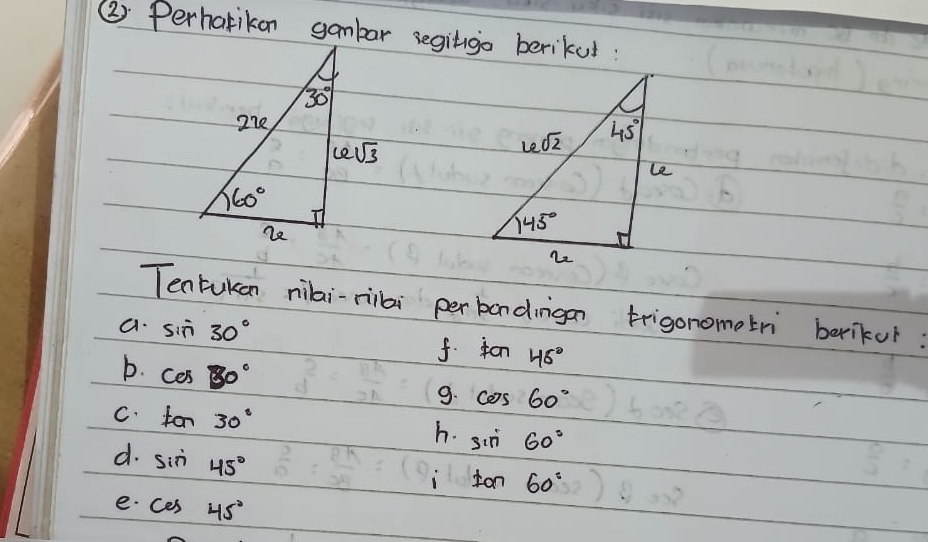 ② Perhatikan gambar segitiga berikut :
30°
2x
x√3
60°
x
45°
x√2
x
45°
x
Tentukan nilai-nilai perbandingan trigonometri berikut :
a. sin 30°
b. cos 30°
c. tan 30°
d. sin 45°
e. cos 45°
f. tan 45°
g. cos 60°
h. sin 60°
i tan 60°